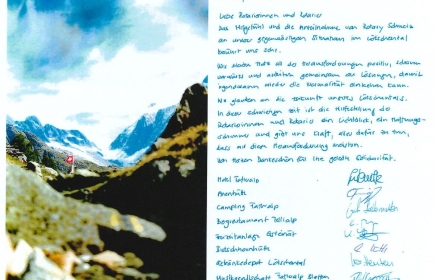 Liebe Rotarierinnen und Rotarier
Das Mitgefühl und die Anteilnahme von Rotary Schweiz
an unserer gegenwärtigen Situation im Lötschental
berührt uns sehr.
Wir bleiben trotz all der Herausforderungen positiv, schauen
vorwärts und arbeiten gemeinsam an Lösungen, damit
irgendwann wieder die Normalität einkehren kann.
Wir glauben an die Zukunft unseres Lötschentals.
In dieser schwierigen Zeit ist die Hilfestellung der
Rotarierinnen und Rotarier ein Lichtblick, ein Hoffnungs-
schimmer und gibt uns Kraft, alles dafür zu tun,
dass wir diese Herausforderung meistern.
Von Herzen Dankeschön für Ihre gelebte Solidarität.
Hotel Fafleralp
Anenhütte
Camping Fafleralp
Bergrestaurant Tellialp
Freizeitanlage
Hollandiahütte
Lötschental
Fafleralp